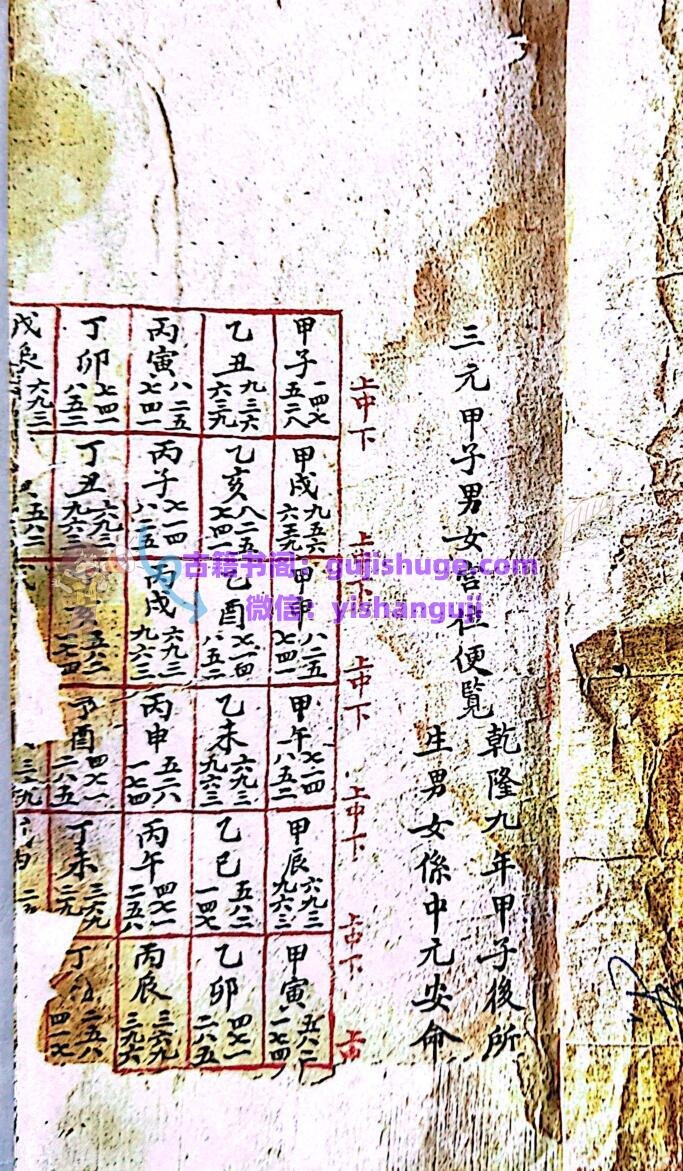 三元甲子男女宮位便覧
乾隆九年甲子後所
生男女係中元安命
上中下
上中下
上中下
上中下
上中下
上
甲子 一四七 五二八
甲戌 九五六 六三九
甲申 八二五 七四一
甲午 七一四 八五二
甲辰 六九三 九六三
甲寅 五八二 一七四
乙丑 九三六 六三九
乙亥 八二五 七四一
乙酉 七一四 八五二
乙未 六九三 九六三
乙巳 五八二 一四七
乙卯 四七一 二八五
丙寅 八二五 七四一
丙子 七一四 八二五
丙戌 六九三 九六三
丙申 五二八 一七四
丙午 四七一 二五八
丙辰 三六九 三九六
丁卯 七四一 八五二
丁丑 六九三 九六三
丁亥 五八二 一七四
丁酉 四七一 二八五
丁未 三六九
丁 二五八 四一七
戊辰 六九三
五八二
古籍书阁：gujishuge.com
微信：yishanguji